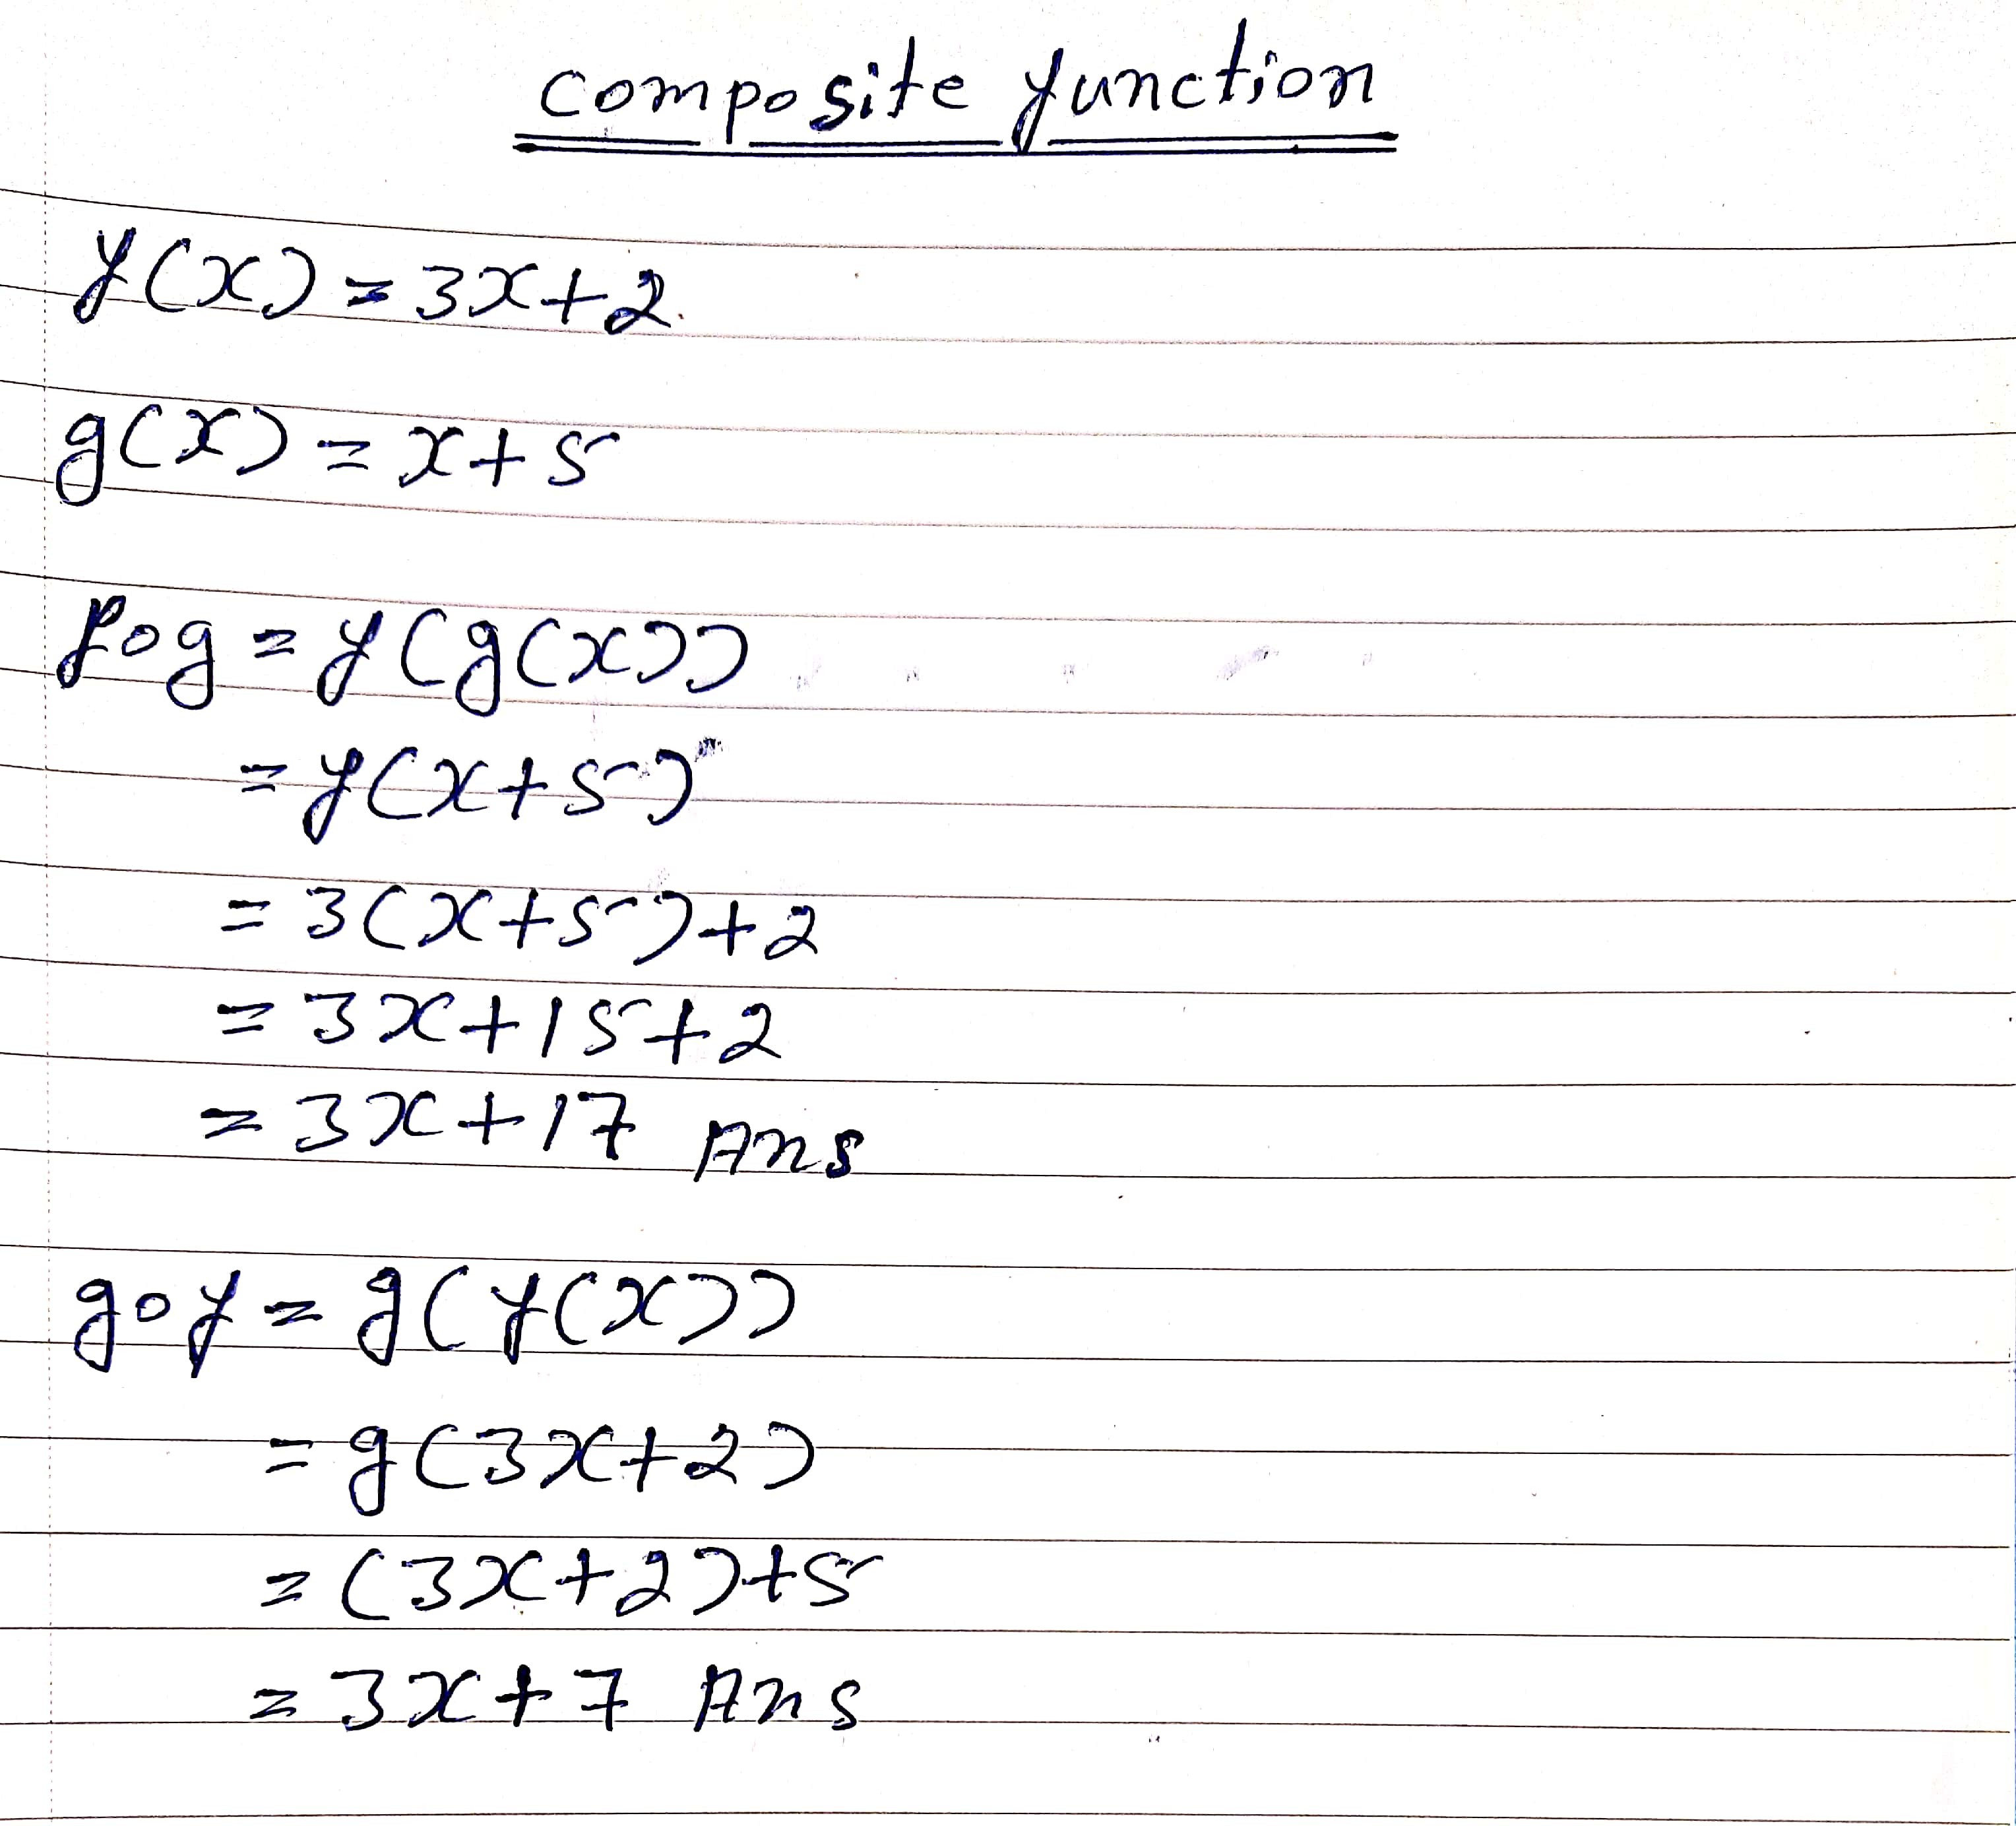 composite function
f(x) = 3x+2
g(x) = x+5
fog = f(g(x))
= f(x+5)
= 3(x+5)+2
= 3x+15+2
= 3x+17 Ans
gof = g(f(x))
= g(3x+2)
= (3x+2)+5
= 3x+7 Ans